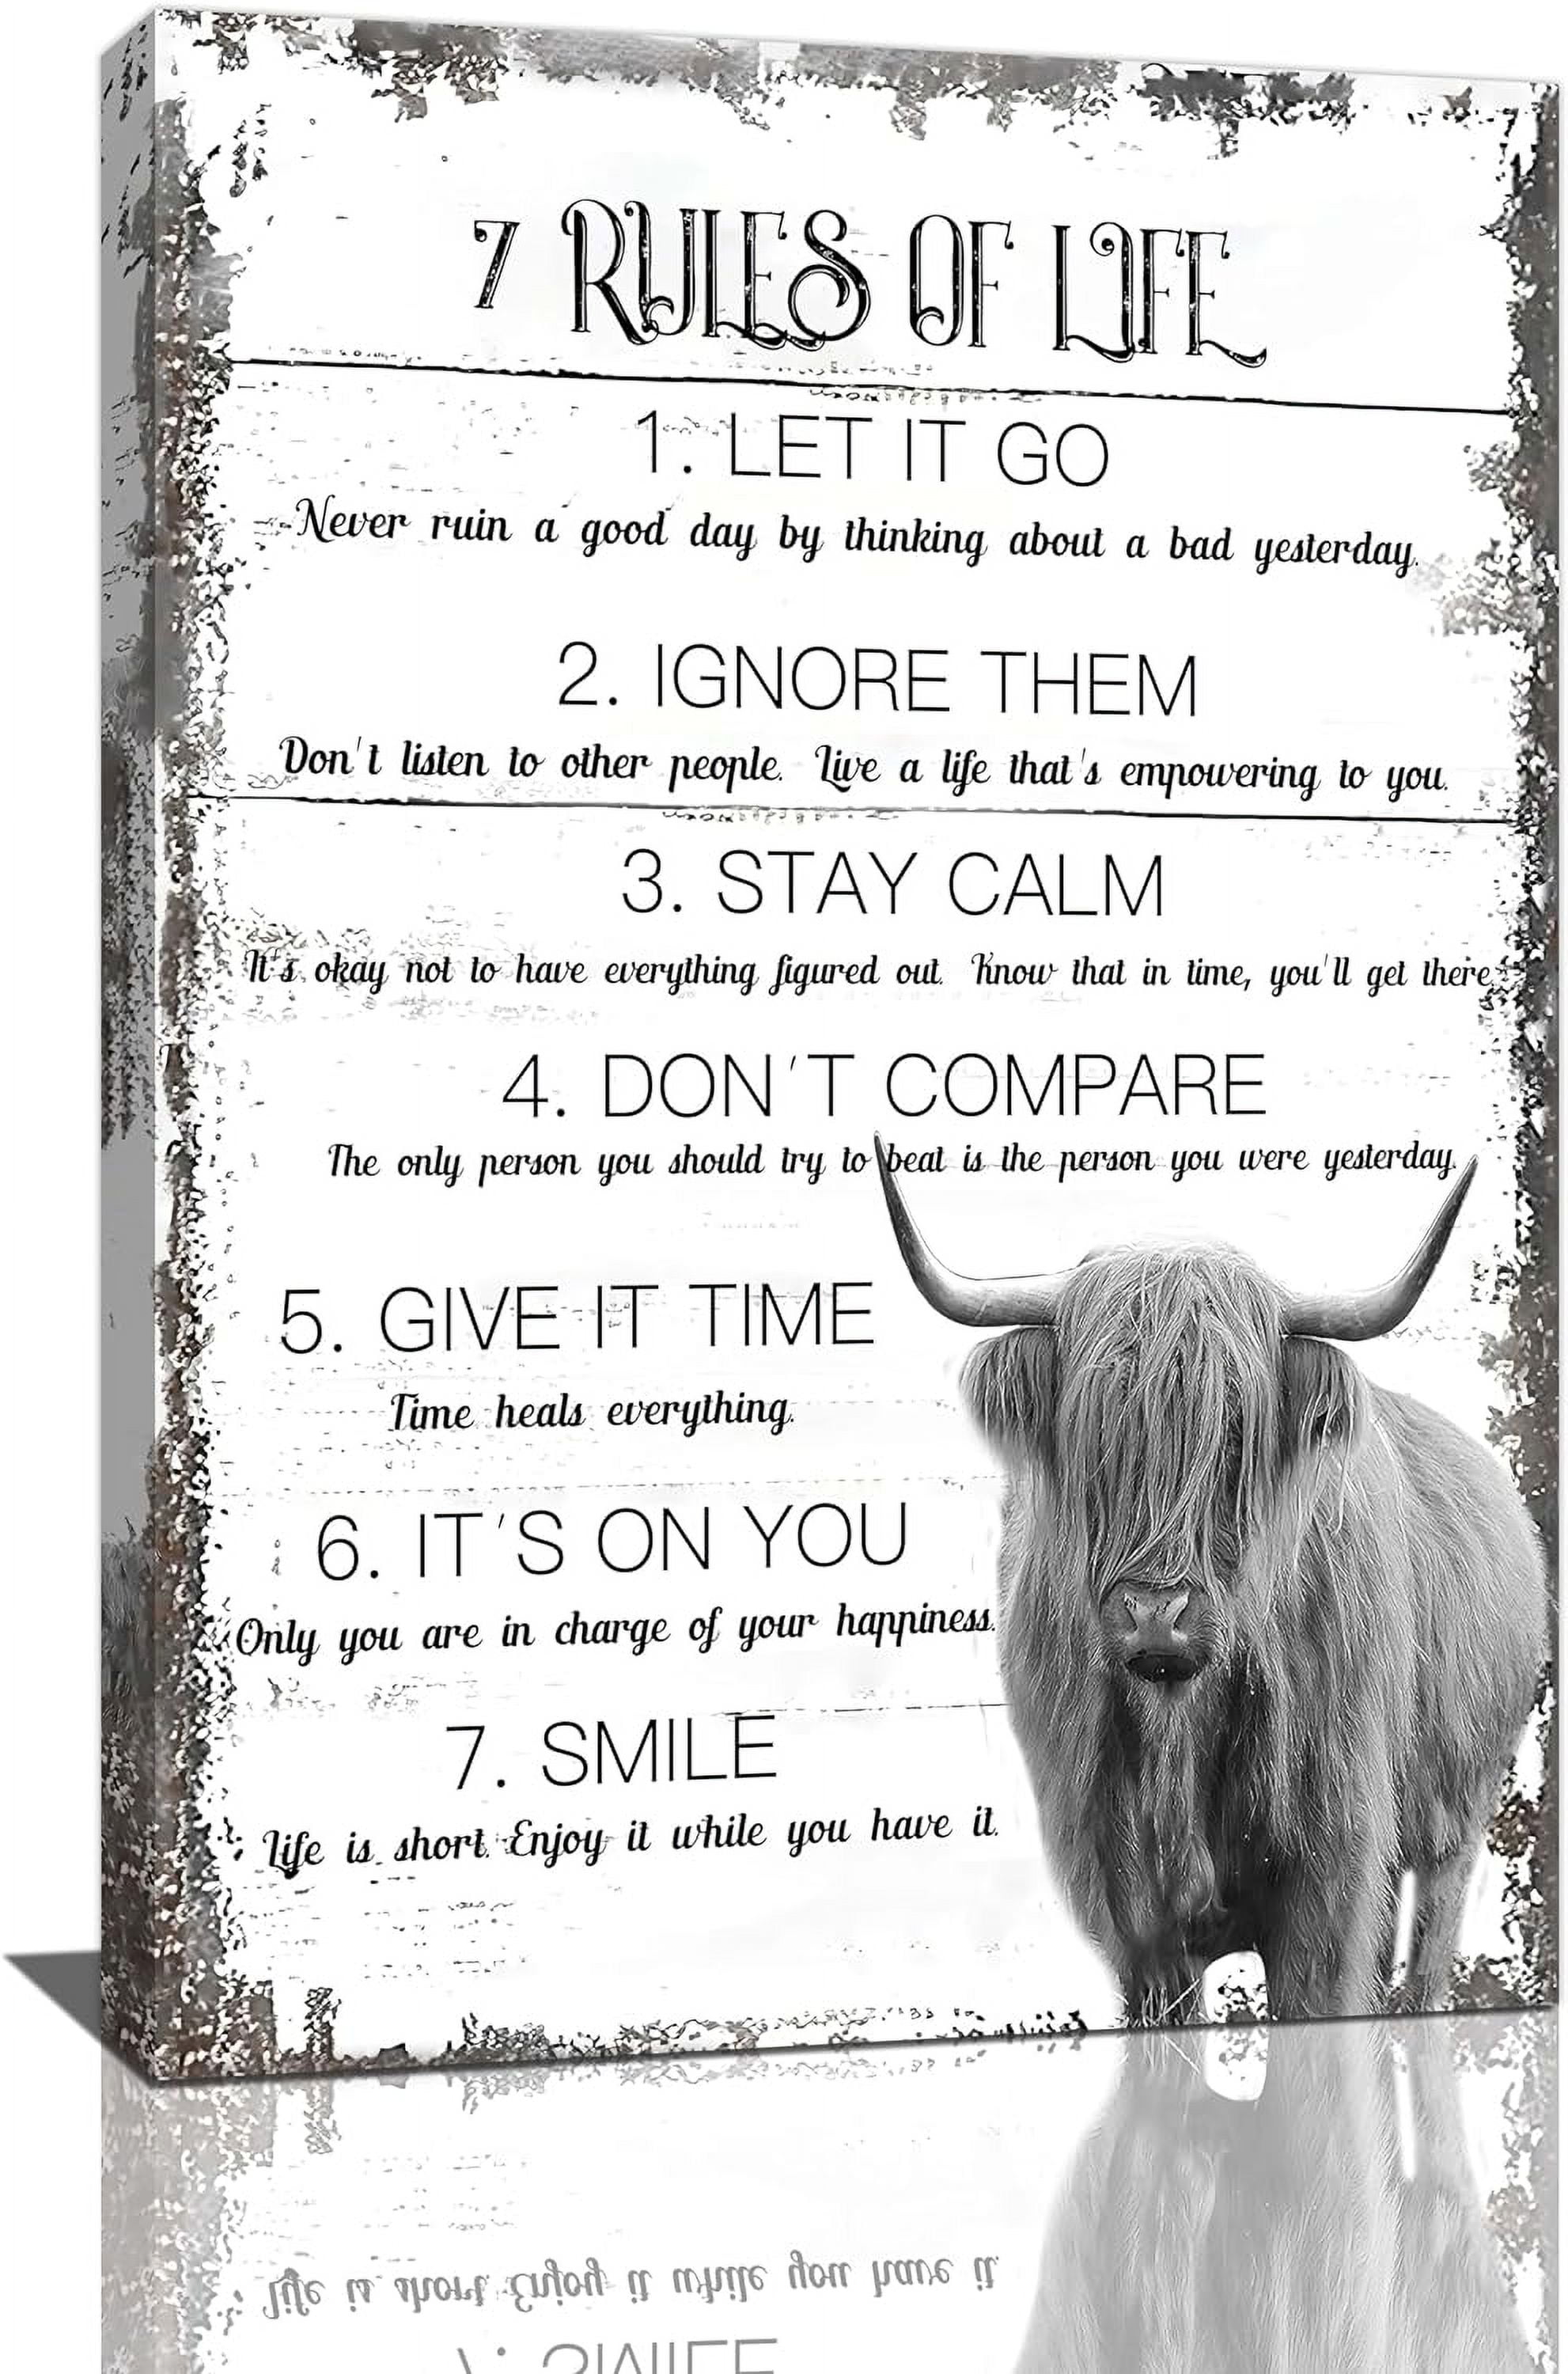 7 RULES OF LIFE
1. LET IT GO
Never ruin a good day by thinking about a bad yesterday.
2. IGNORE THEM
Don't listen to other people. Live a life that's empowering to you.
3. STAY CALM
It's okay not to have everything figured out. Know that in time, you'll get there.
4. DON'T COMPARE
The only person you should try to beat is the person you were yesterday.
5. GIVE IT TIME
Time heals everything.
6. IT'S ON YOU
Only you are in charge of your happiness.
7. SMILE
Life is short. Enjoy it while you have it.